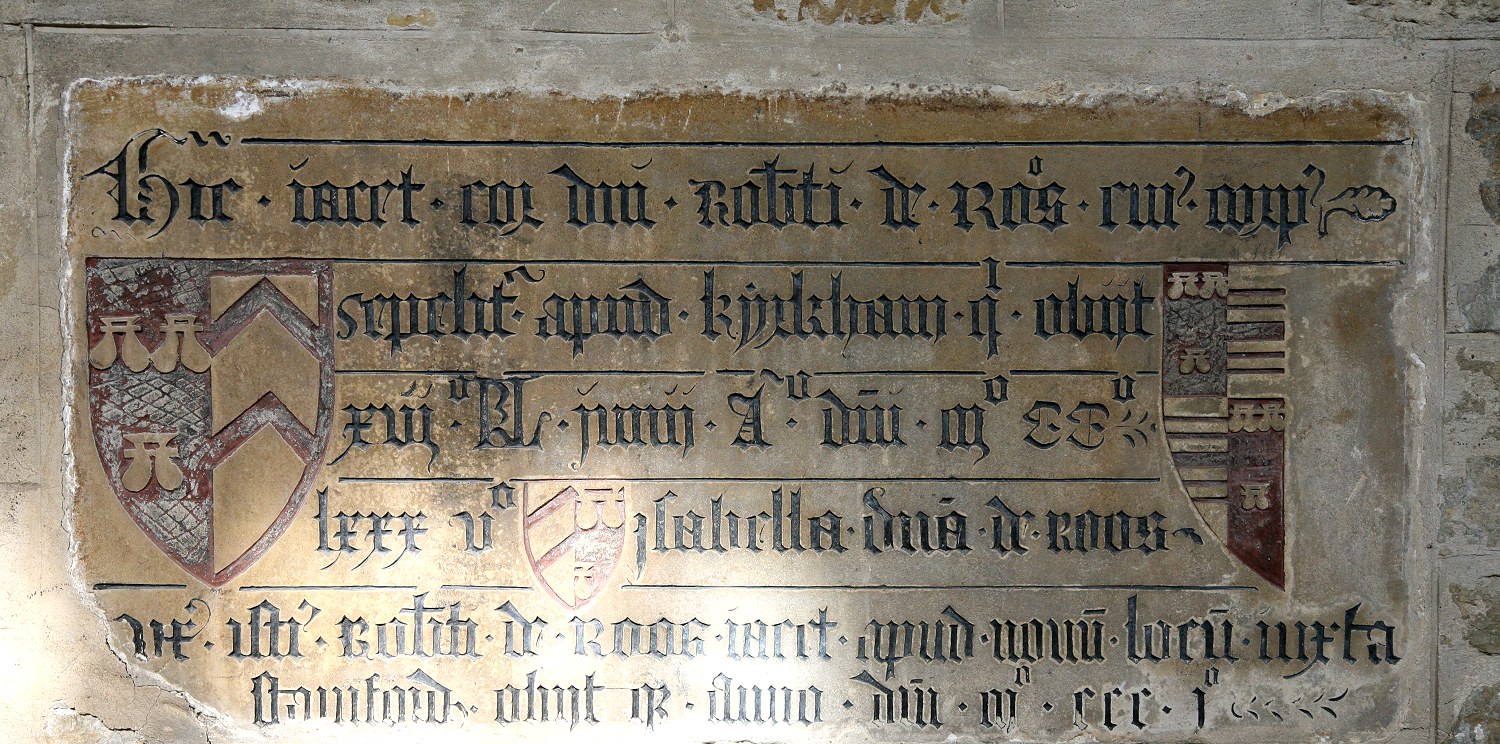 Hic · iacet · cor dñi · Rob̄ti · de · Roos · cui' · corp'
sepelit' · apud · kyrkham · qi · obijt
xvijo · kl · junij · Ao · dñi · mo · CCo
lxxx vo jsabella · dña · de · roos
vx' · isti' · Rob̄ti · de · roos · iacet · apud · nouū · locū · iuxta
stamford · obijt · Ao · dñi · mo · ccc · jo